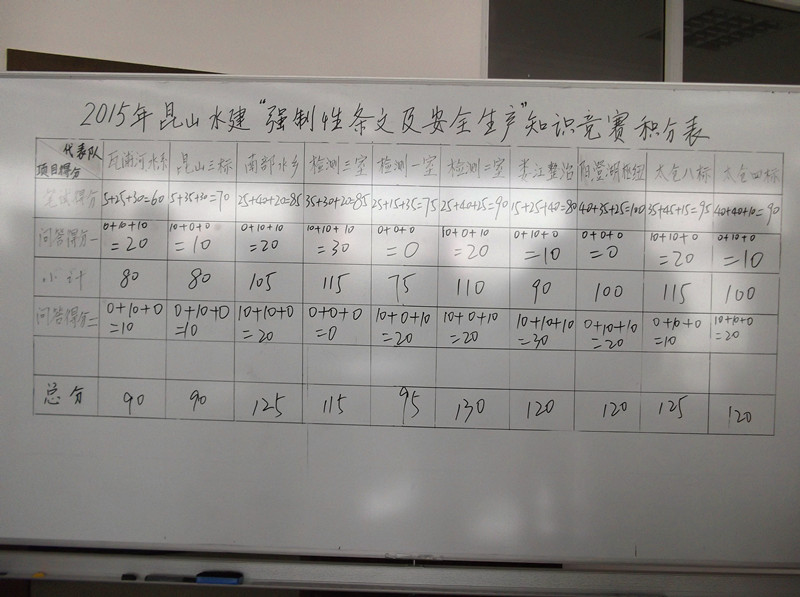 2015年昆山水建"强制性条文及安全生产"知识竞赛积分表
代表队 项目得分 瓦浦河水系 昆山三标 南部水乡 检测三室 检测一室 检测二室 娄江整治 阳澄湖枢纽 太仓八标 太仓四标
笔试得分 5+25+30=60 5+35+30=70 25+40+20=85 35+30+20=85 25+15+35=75 25+40+25=90 15+25+40=80 40+35+25=100 35+45+15=95 40+40+10=90
问答得分一 0+10+10 10+0+0 0+10+10 10+10+10 0+0+0 10+0+10 0+10+0 0+0+0 10+10+0 0+10+0
=20 =10 =20 =30 =0 =20 =10 =0 =20 =10
小计 80 80 105 115 75 110 90 100 115 100
问答得分二 0+10+0 0+10+0 10+10+0 0+0+0 10+0+10 10+0+10 10+10+10 0+10+10 0+10+0 10+10+0
=10 =10 =20 =0 =20 =20 =30 =20 =10 =20
总分 90 90 125 115 95 130 120 120 125 120